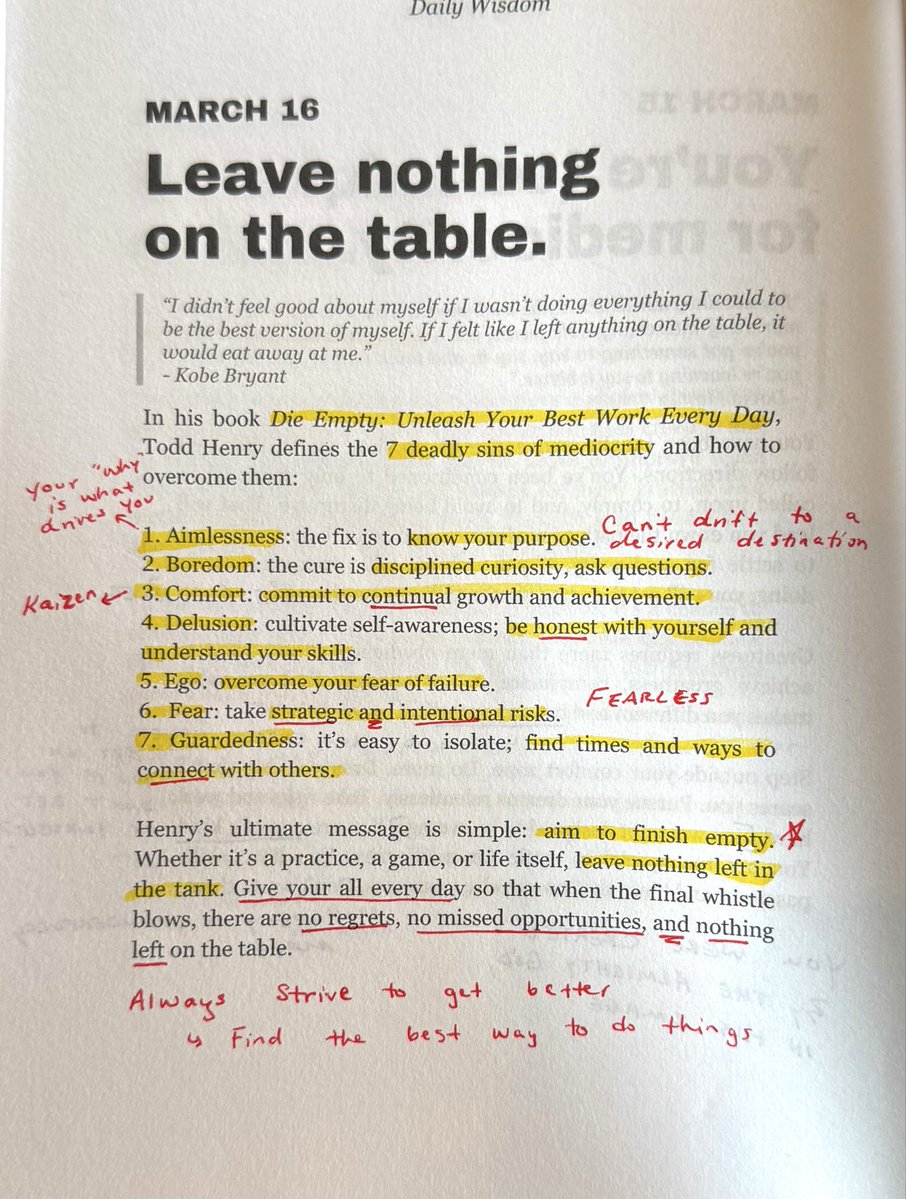 Daily Wisdom
MARCH 16
Leave nothing
on the table.
“I didn’t feel good about myself if I wasn’t doing everything I could to
be the best version of myself. If I felt like I left anything on the table, it
would eat away at me.”
- Kobe Bryant
In his book Die Empty: Unleash Your Best Work Every Day,
Todd Henry defines the 7 deadly sins of mediocrity and how to
overcome them:
Your "why"
is what
drives you
1. Aimlessness: the fix is to know your purpose.
Can't drift to a
desired destination
2. Boredom: the cure is disciplined curiosity, ask questions.
Kaizen
3. Comfort: commit to continual growth and achievement.
4. Delusion: cultivate self-awareness; be honest with yourself and
understand your skills.
5. Ego: overcome your fear of failure.
FEARLESS
6. Fear: take strategic and intentional risks.
7. Guardedness: it’s easy to isolate; find times and ways to
connect with others.
Henry’s ultimate message is simple: aim to finish empty.
Whether it’s a practice, a game, or life itself, leave nothing left in
the tank. Give your all every day so that when the final whistle
blows, there are no regrets, no missed opportunities, and nothing
left on the table.
Always strive to get better
↳ Find the best way to do things